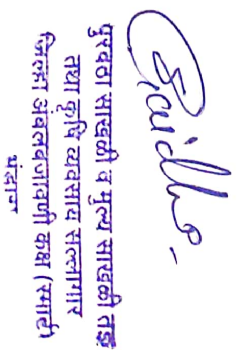 पुरवठा साखळी व मुल्य साखळी तज्ञ
तथा कृषि व्यवसाय सल्लागार
जिल्हा अंमलबजावणी कक्ष (स्मार्ट)